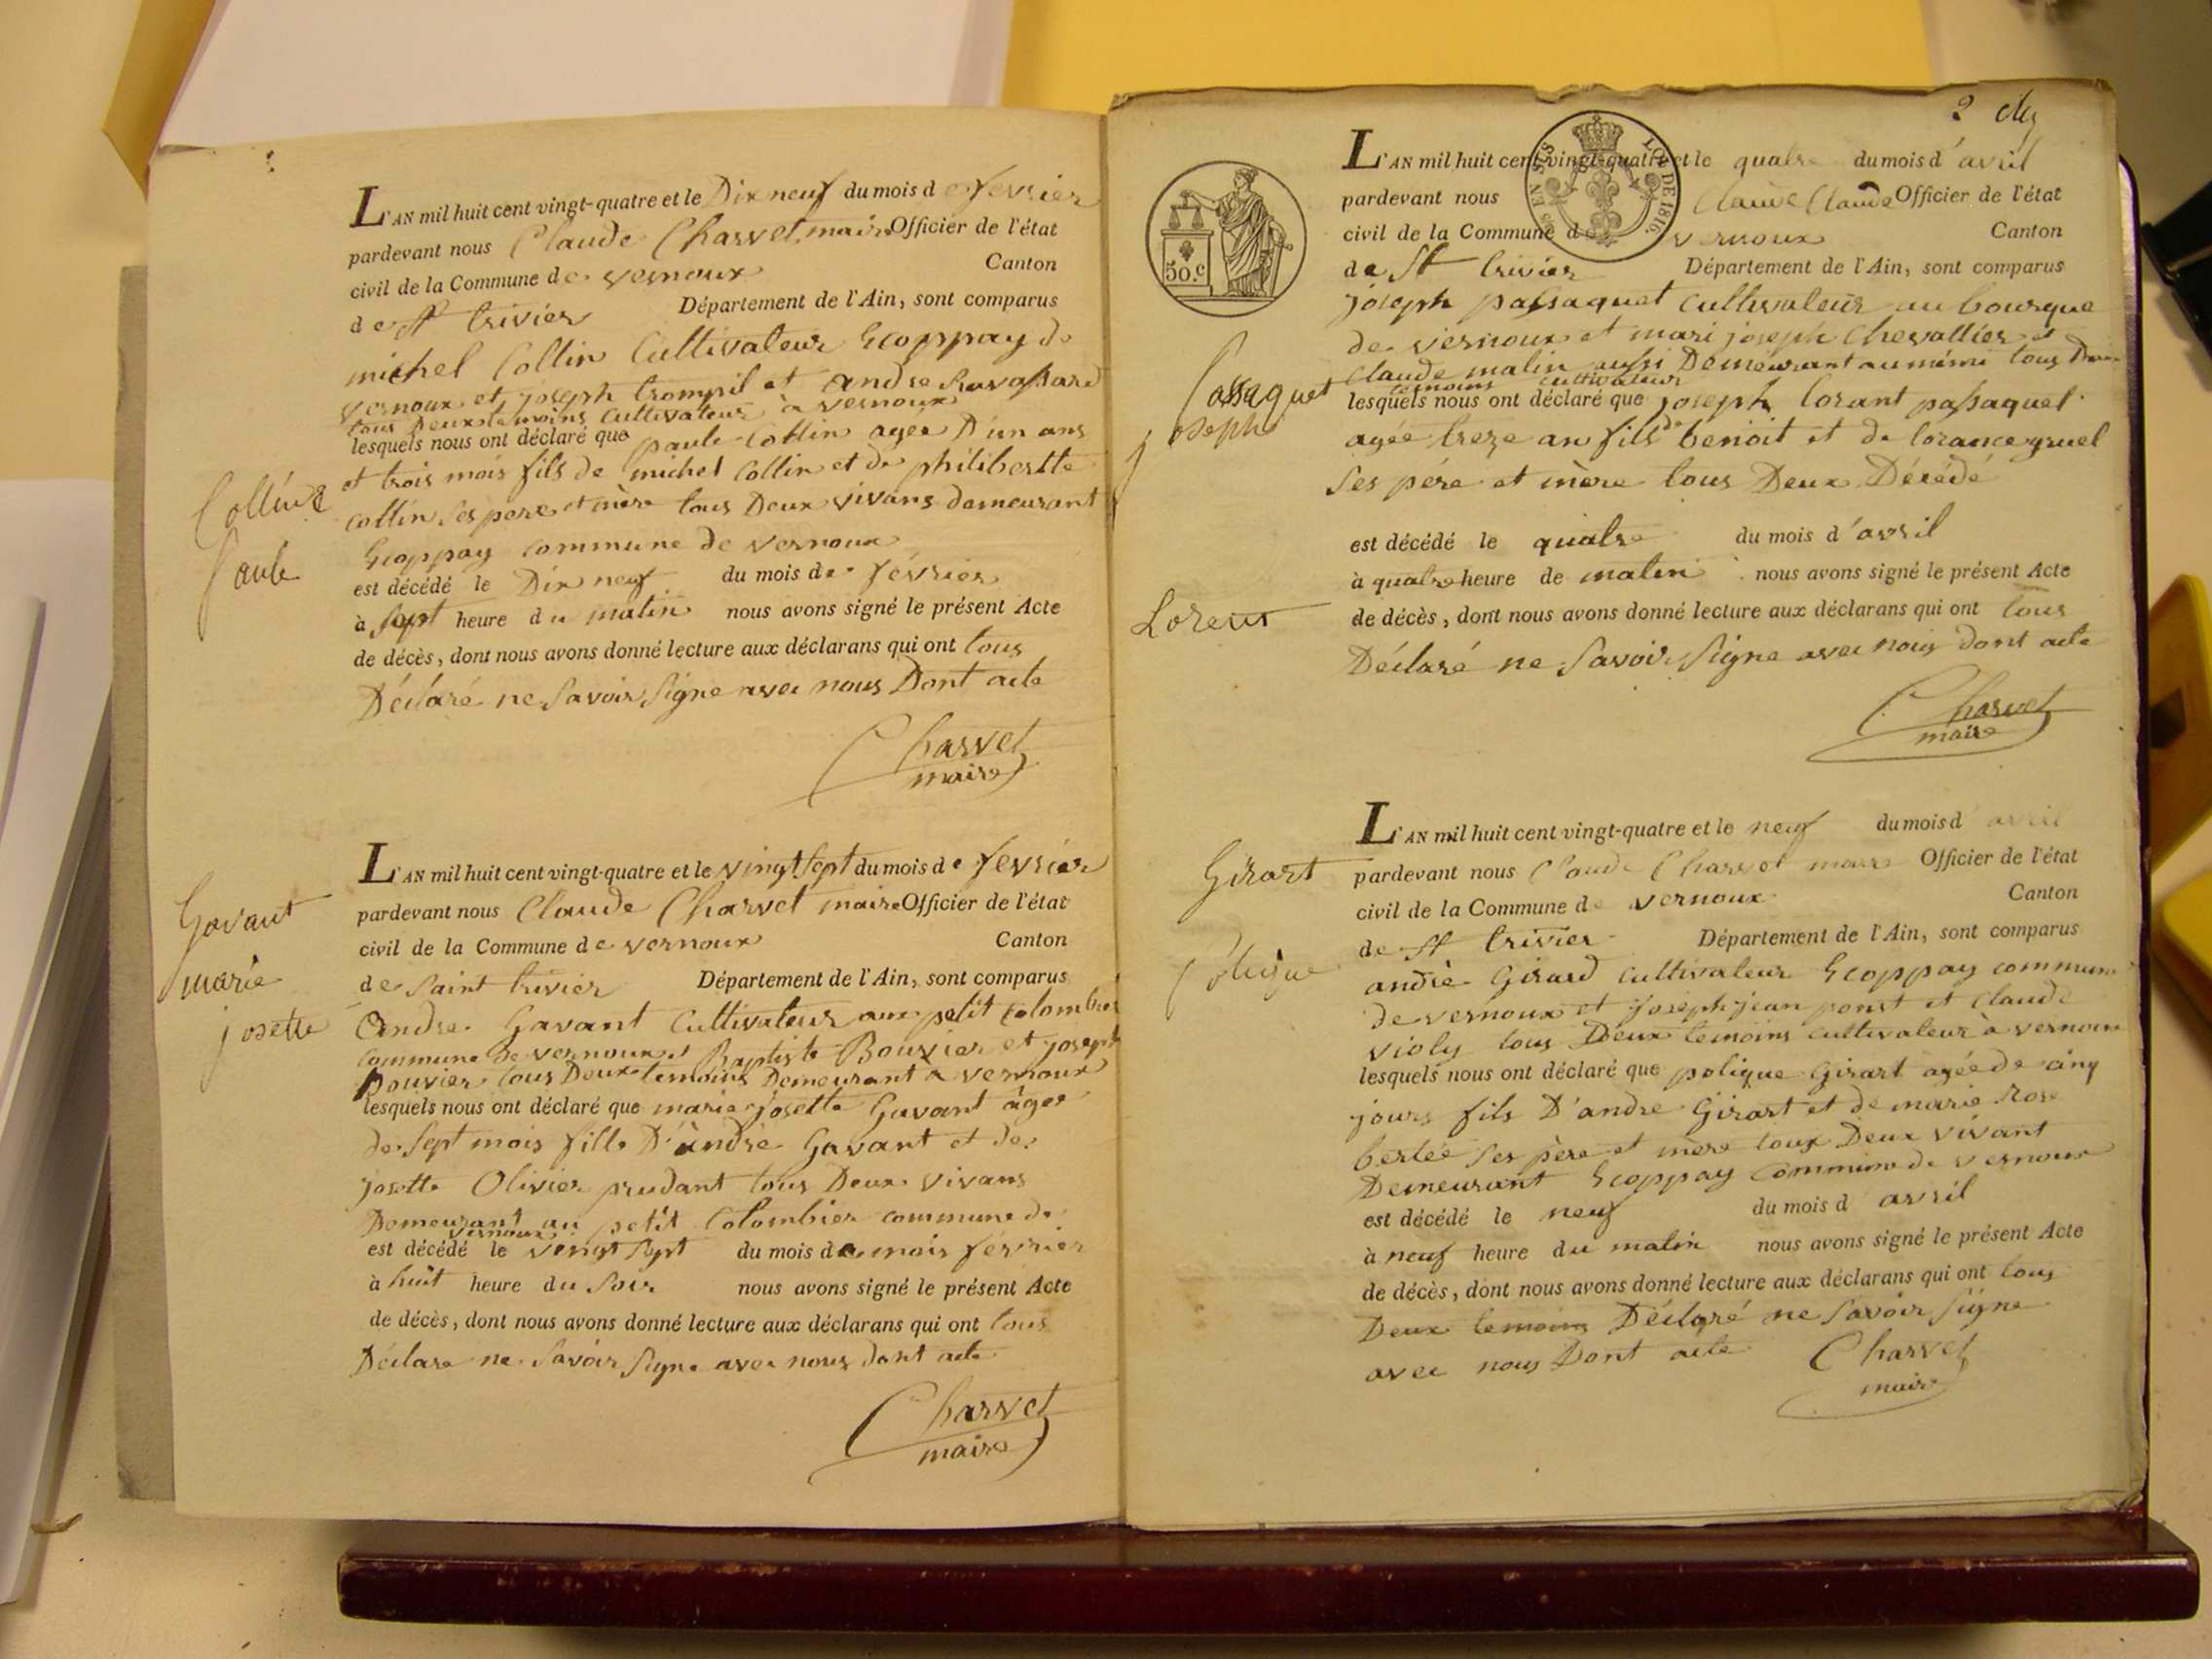 L'AN mil huit cent vingt-quatre et le Dix neuf du mois de fevrier
pardevant nous Claude Charvet maire Officier de l'état
civil de la Commune de vernoux Canton
de St trivier Département de l'Ain, sont comparus
michel Collin Cultivateur Ecoppay de
vernoux et joseph trompil et andre Ravassard
tous Deux temoins Cultivateur à vernoux
lesquels nous ont déclaré que paule Collin agee D'un ans
et trois mois fils de michel Collin et de philibertte
Collin, ses pere et mère tous Deux vivans demeurant
Ecoppay commune de vernoux
est décédé le Dix neuf du mois de février
à sept heure du matin nous avons signé le présent Acte
de décès, dont nous avons donné lecture aux déclarans qui ont tous
Déclaré ne Savoir Signe avec nous Dont acte
Charvet
maire
Paule
L'AN mil huit cent vingt-quatre et le vingt sept du mois de fevrier
pardevant nous Claude Charvet maire Officier de l'état
civil de la Commune de vernoux Canton
de Saint trivier Département de l'Ain, sont comparus
Andre Gavant Cultivateur au petit Colombier
Commune de vernoux et Baptiste Bouvier et joseph
Bouvier tous Deux temoins Demeurant à vernoux
lesquels nous ont déclaré que marie josette Gavant âgee
de Sept mois fille D'andre Gavant et de
josette Olivier prudant tous Deux vivans
Demeurant au petit Colombier commune de
vernoux
est décédé le vingt sept du mois de mois février
à huit heure du Soir nous avons signé le présent Acte
de décès, dont nous avons donné lecture aux déclarans qui ont tous
Déclare ne Savoir Signe avec nous dont acte
Charvet
maire
Gavant
marie
josette
2
L'AN mil huit cent vingt-quatre et le quatre du mois d'avril
pardevant nous Claude Claude Officier de l'état
civil de la Commune de vernoux Canton
de St trivier Département de l'Ain, sont comparus
joseph passaquet Cultivateur au bourque
de vernoux et mari joseph Chevallier et
Claude malin aussi Demeurant au même tous Deux
temoins cultivateur
lesquels nous ont déclaré que joseph lorant passaquet
agée treze an fils de benoit et de lorance gruel
Ses pére et mère tous Deux Décédé
est décédé le quatre du mois d'avril
à quatre heure de matin nous avons signé le présent Acte
de décès, dont nous avons donné lecture aux déclarans qui ont tous
Déclaré ne Savoir Signe avec nous dont acte
Charvet
maire
50.c
LOI DE 1816.
Passaquet
joseph
L'AN mil huit cent vingt-quatre et le neuf du mois d'avril
pardevant nous Claude Charvet maire Officier de l'état
civil de la Commune de vernoux Canton
de St trivier Département de l'Ain, sont comparus
andrè Girard cultivateur Ecoppay commune
de vernoux et joseph jean ponst et Claude
violy tous Deux temoins cultivateur à vernoux
lesquels nous ont déclaré que polique Girart agée de cinq
jours fils D'andre Girart et de marie Rose
bertée Ses père et mère toux Deux vivant
Demeurant Ecoppay Commune de vernoux
est décédé le neuf du mois d'avril
à neuf heure du matin nous avons signé le présent Acte
de décès, dont nous avons donné lecture aux déclarans qui ont tous
Deux temoins Déclaré ne Savoir Signe
avec nous Dont acte
Charvet
maire
Girart